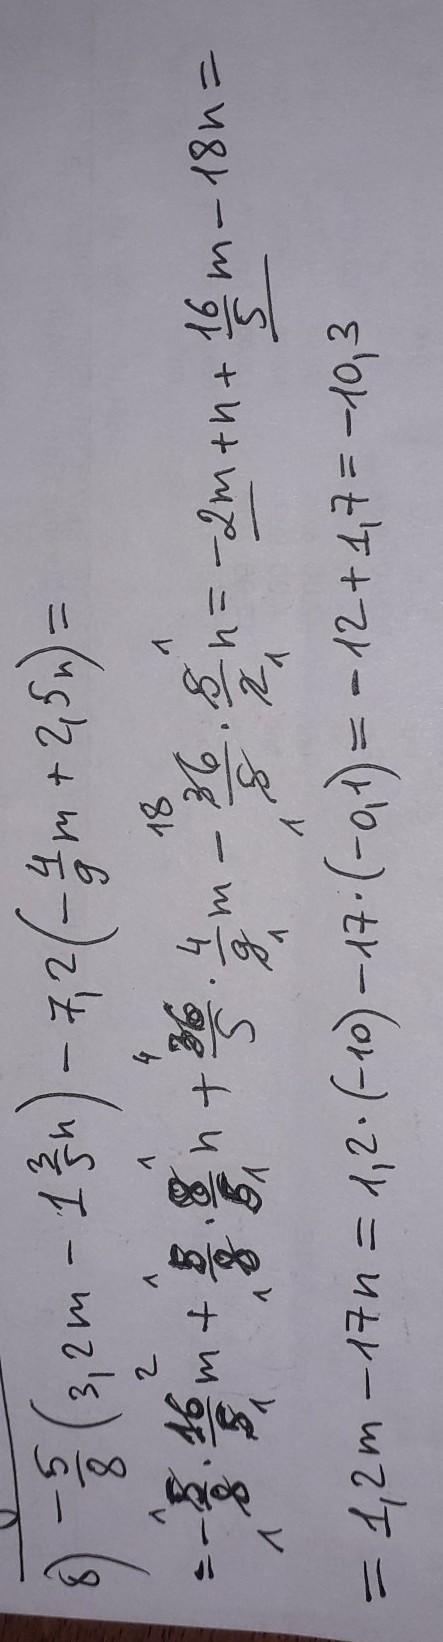 8) -5/8 (3,2m - 1 3/5 n) - 7,2 (-4/9 m + 2,5n) =
= -5/8 · 16/5 m + 5/8 · 8/5 n + 36/5 · 4/9 m - 36/5 · 5/2 n = -2m + n + 16/5 m - 18n =
= 1,2m - 17n = 1,2 · (-10) - 17 · (-0,1) = -12 + 1,7 = -10,3